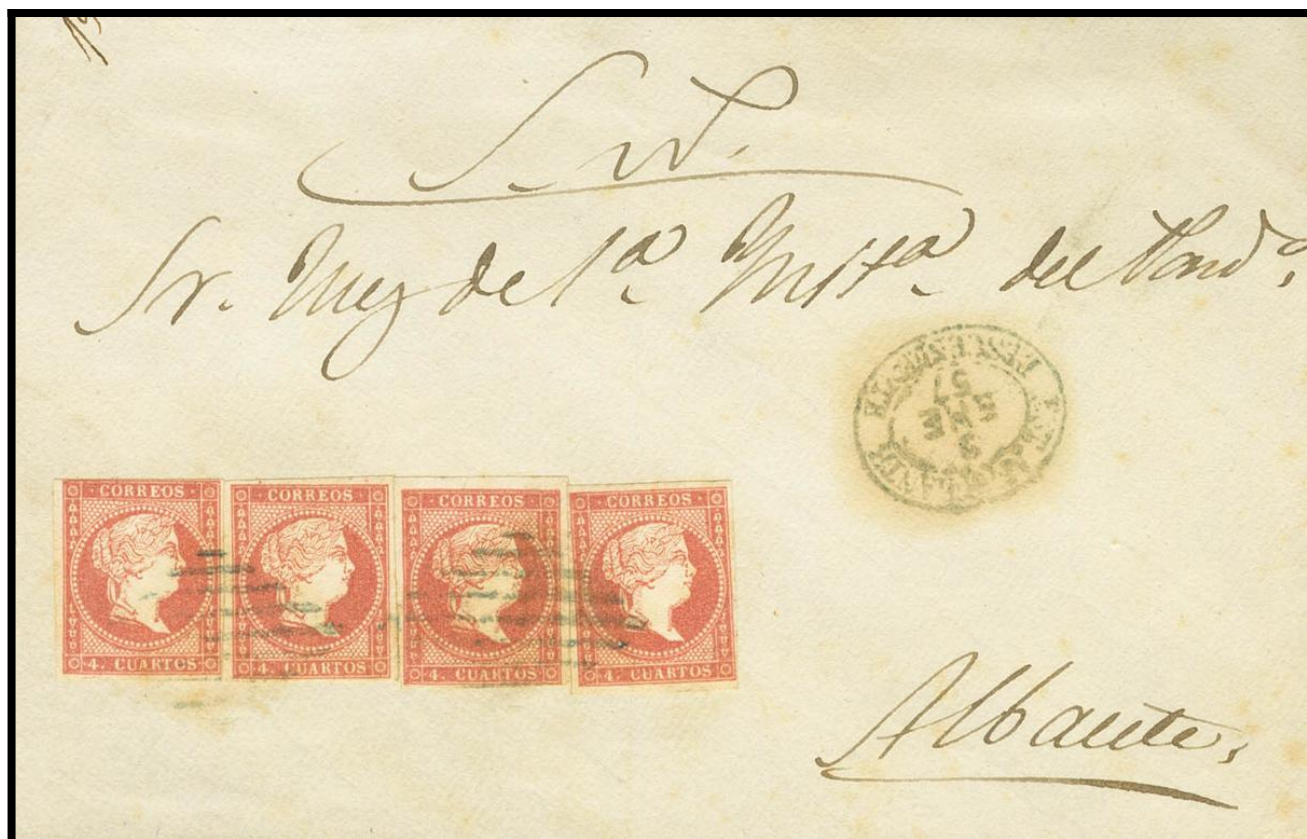 S. N.
Sr. Juez de 1ª Instª del Part.º
3
ENE
57
CORREOS CORREOS CORREOS CORREOS
4. CUARTOS 4. CUARTOS 4. CUARTOS 4. CUARTOS
Albacete.